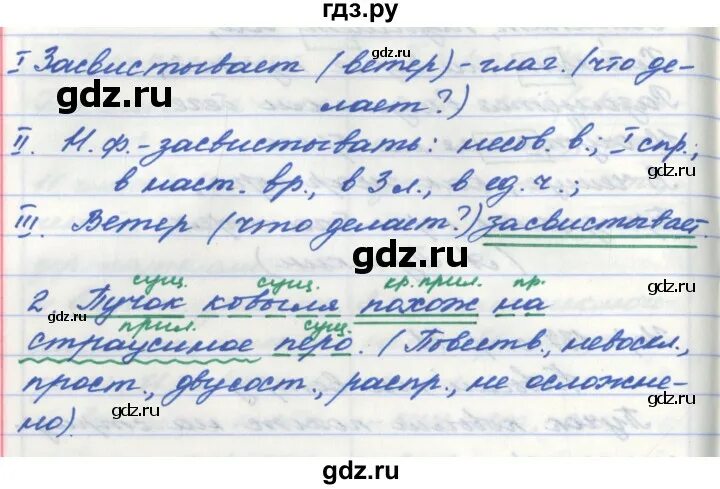 гдз.ру
I Засвистывает (ветер) - глаг. (что де-
лает?)
II. Н.ф. - засвистывать: несов. в.; I спр.;
в наст. вр., в 3 л., в ед. ч.;
III. Ветер (что делает?) засвистывает.
сущ. сущ. кр. прил. пр.
2 Пучок ковыля похож на
прил. сущ.
страусиное перо. (Повеств., невоскл.,
прост., двусост., распр., не осложне-
но).
gdz.ru
gdz.ru
gdz.ru
gdz.ru
gdz.ru
gdz.ru
gdz.ru
gdz.ru
gdz.ru
gdz.ru
gdz.ru
gdz.ru
gdz.ru